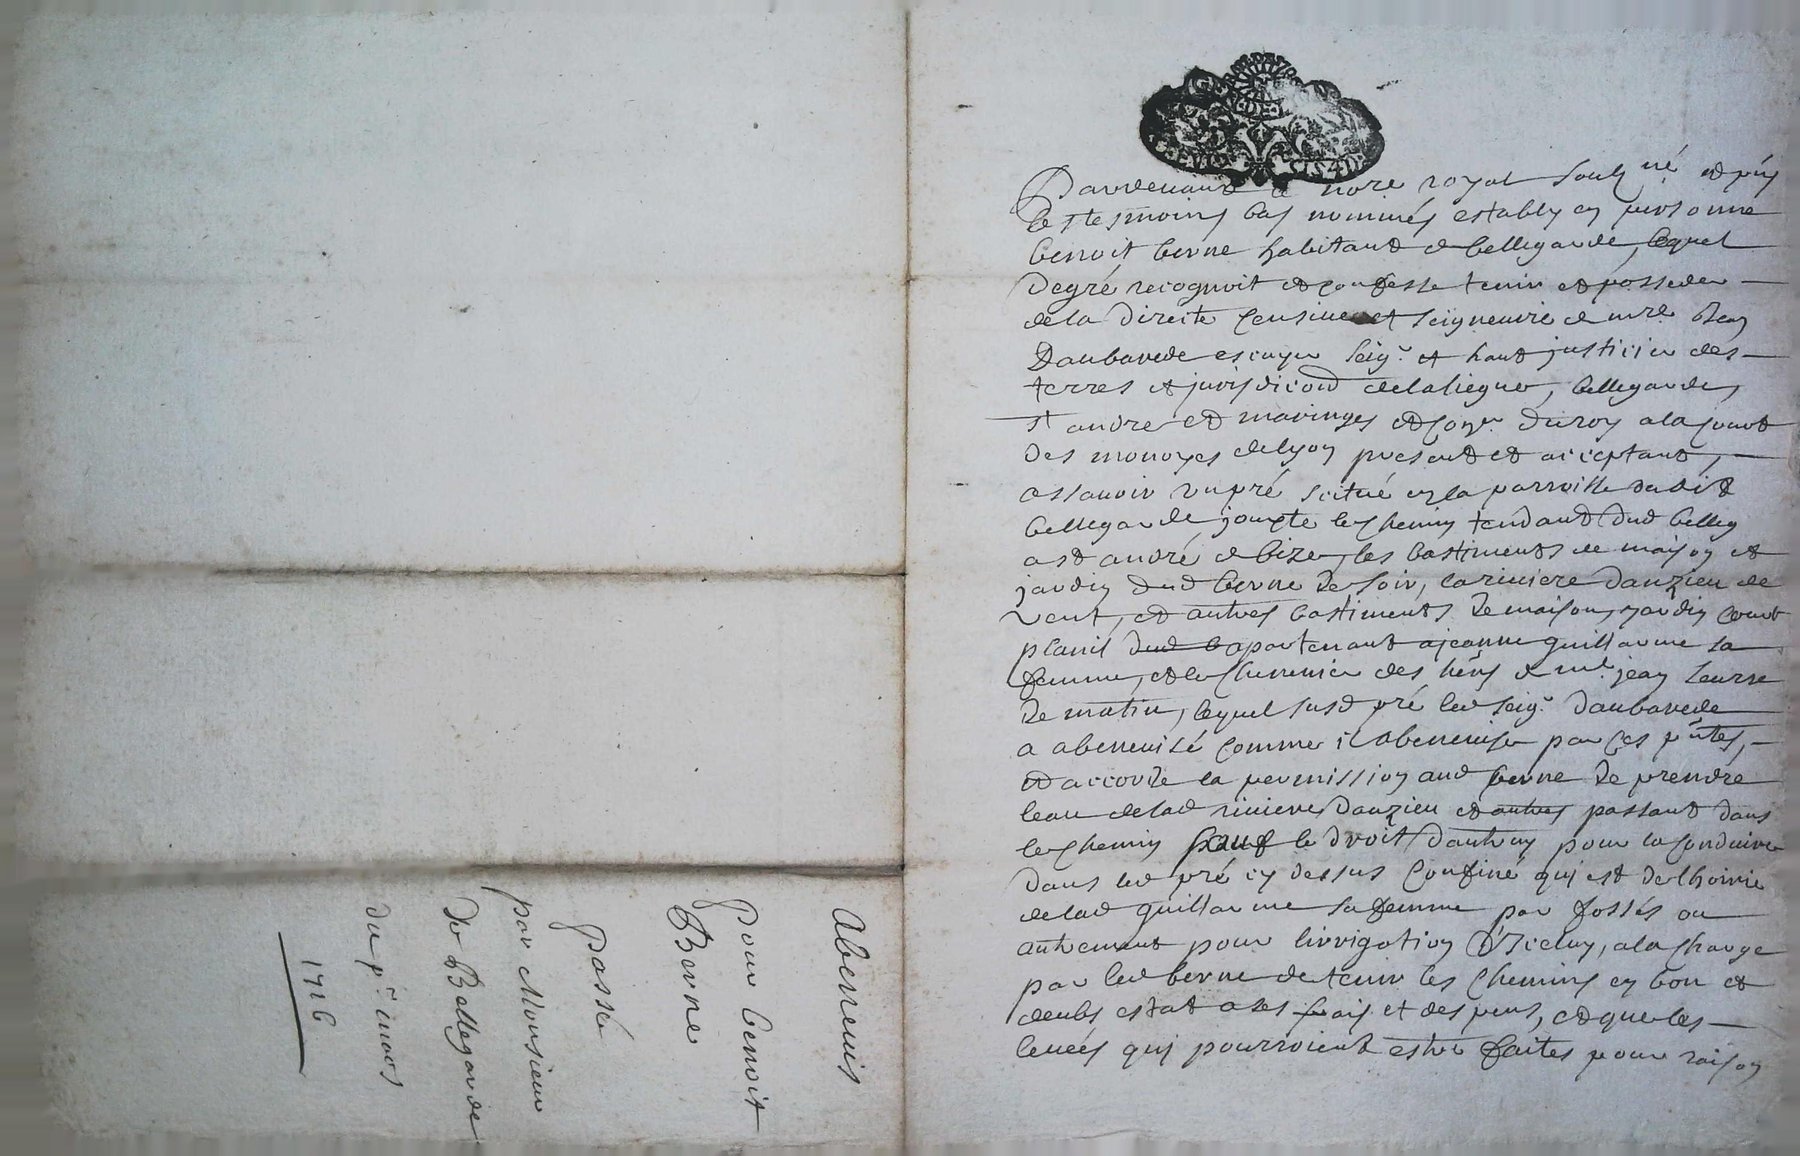 Abeneuis
pour benoit
Berne
passé
par Monsieur
De Bellegarde
du pr. mars
1716
Pardevant le no.re royal soubz.né et p.ns
les tesmoins bas nommés estably en personne
benoit berne habitant de bellegarde, lequel
de gré recognoit et confesse tenir et posseder
de la directe censive et seigneurie de mre
Daubarede escuyer seigr. et haut justicier des
terres et jurisdicõn de laliegue, bellegarde,
st andre et maringes et conser. du roy a la court
des monoyes de lyon present et acceptant,
assauoir un pré scitué en la parroisse dudit
bellegarde jouxte le chemin tendant dud belleg
a st andré de bize, les bastiments de maison et
jardin dud berne de soir, la riuiere danzieu de
vent, et autres bastiments de maison, jardin court
plassis apartenant a jeanne guillarme sa
femme, et le cheneuier des hers de me. jean
de matin, lequel susd pré led seigr. daubarede
a abeneuisé comme il abeneuise par ces pntes,
et accorde la permission aud berne de prendre
leau de lad riuiere danzieu et autres passant dans
le chemin sauf le droit dautruy pour la conduire
dans led pré cy dessus confiné qui est de lhoirie
de lad guillarme sa femme par fossés ou
autrement pour lirrigation d'icelui, a la charge
par led berne de tenir les chemins en bon et
deubs estat a ses frais et despens, et que les
leuées qui pourroient estre faites pour raison